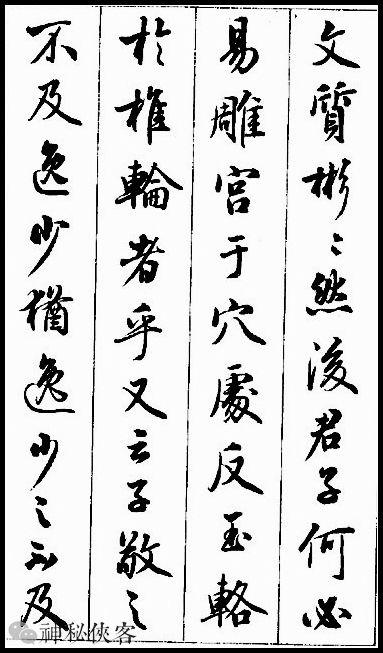 文質彬〻然後君子何必
易雕宮于穴處反玉輅
於椎輪者乎又云子敬之
不及逸少猶逸少之不及
神秘俠客